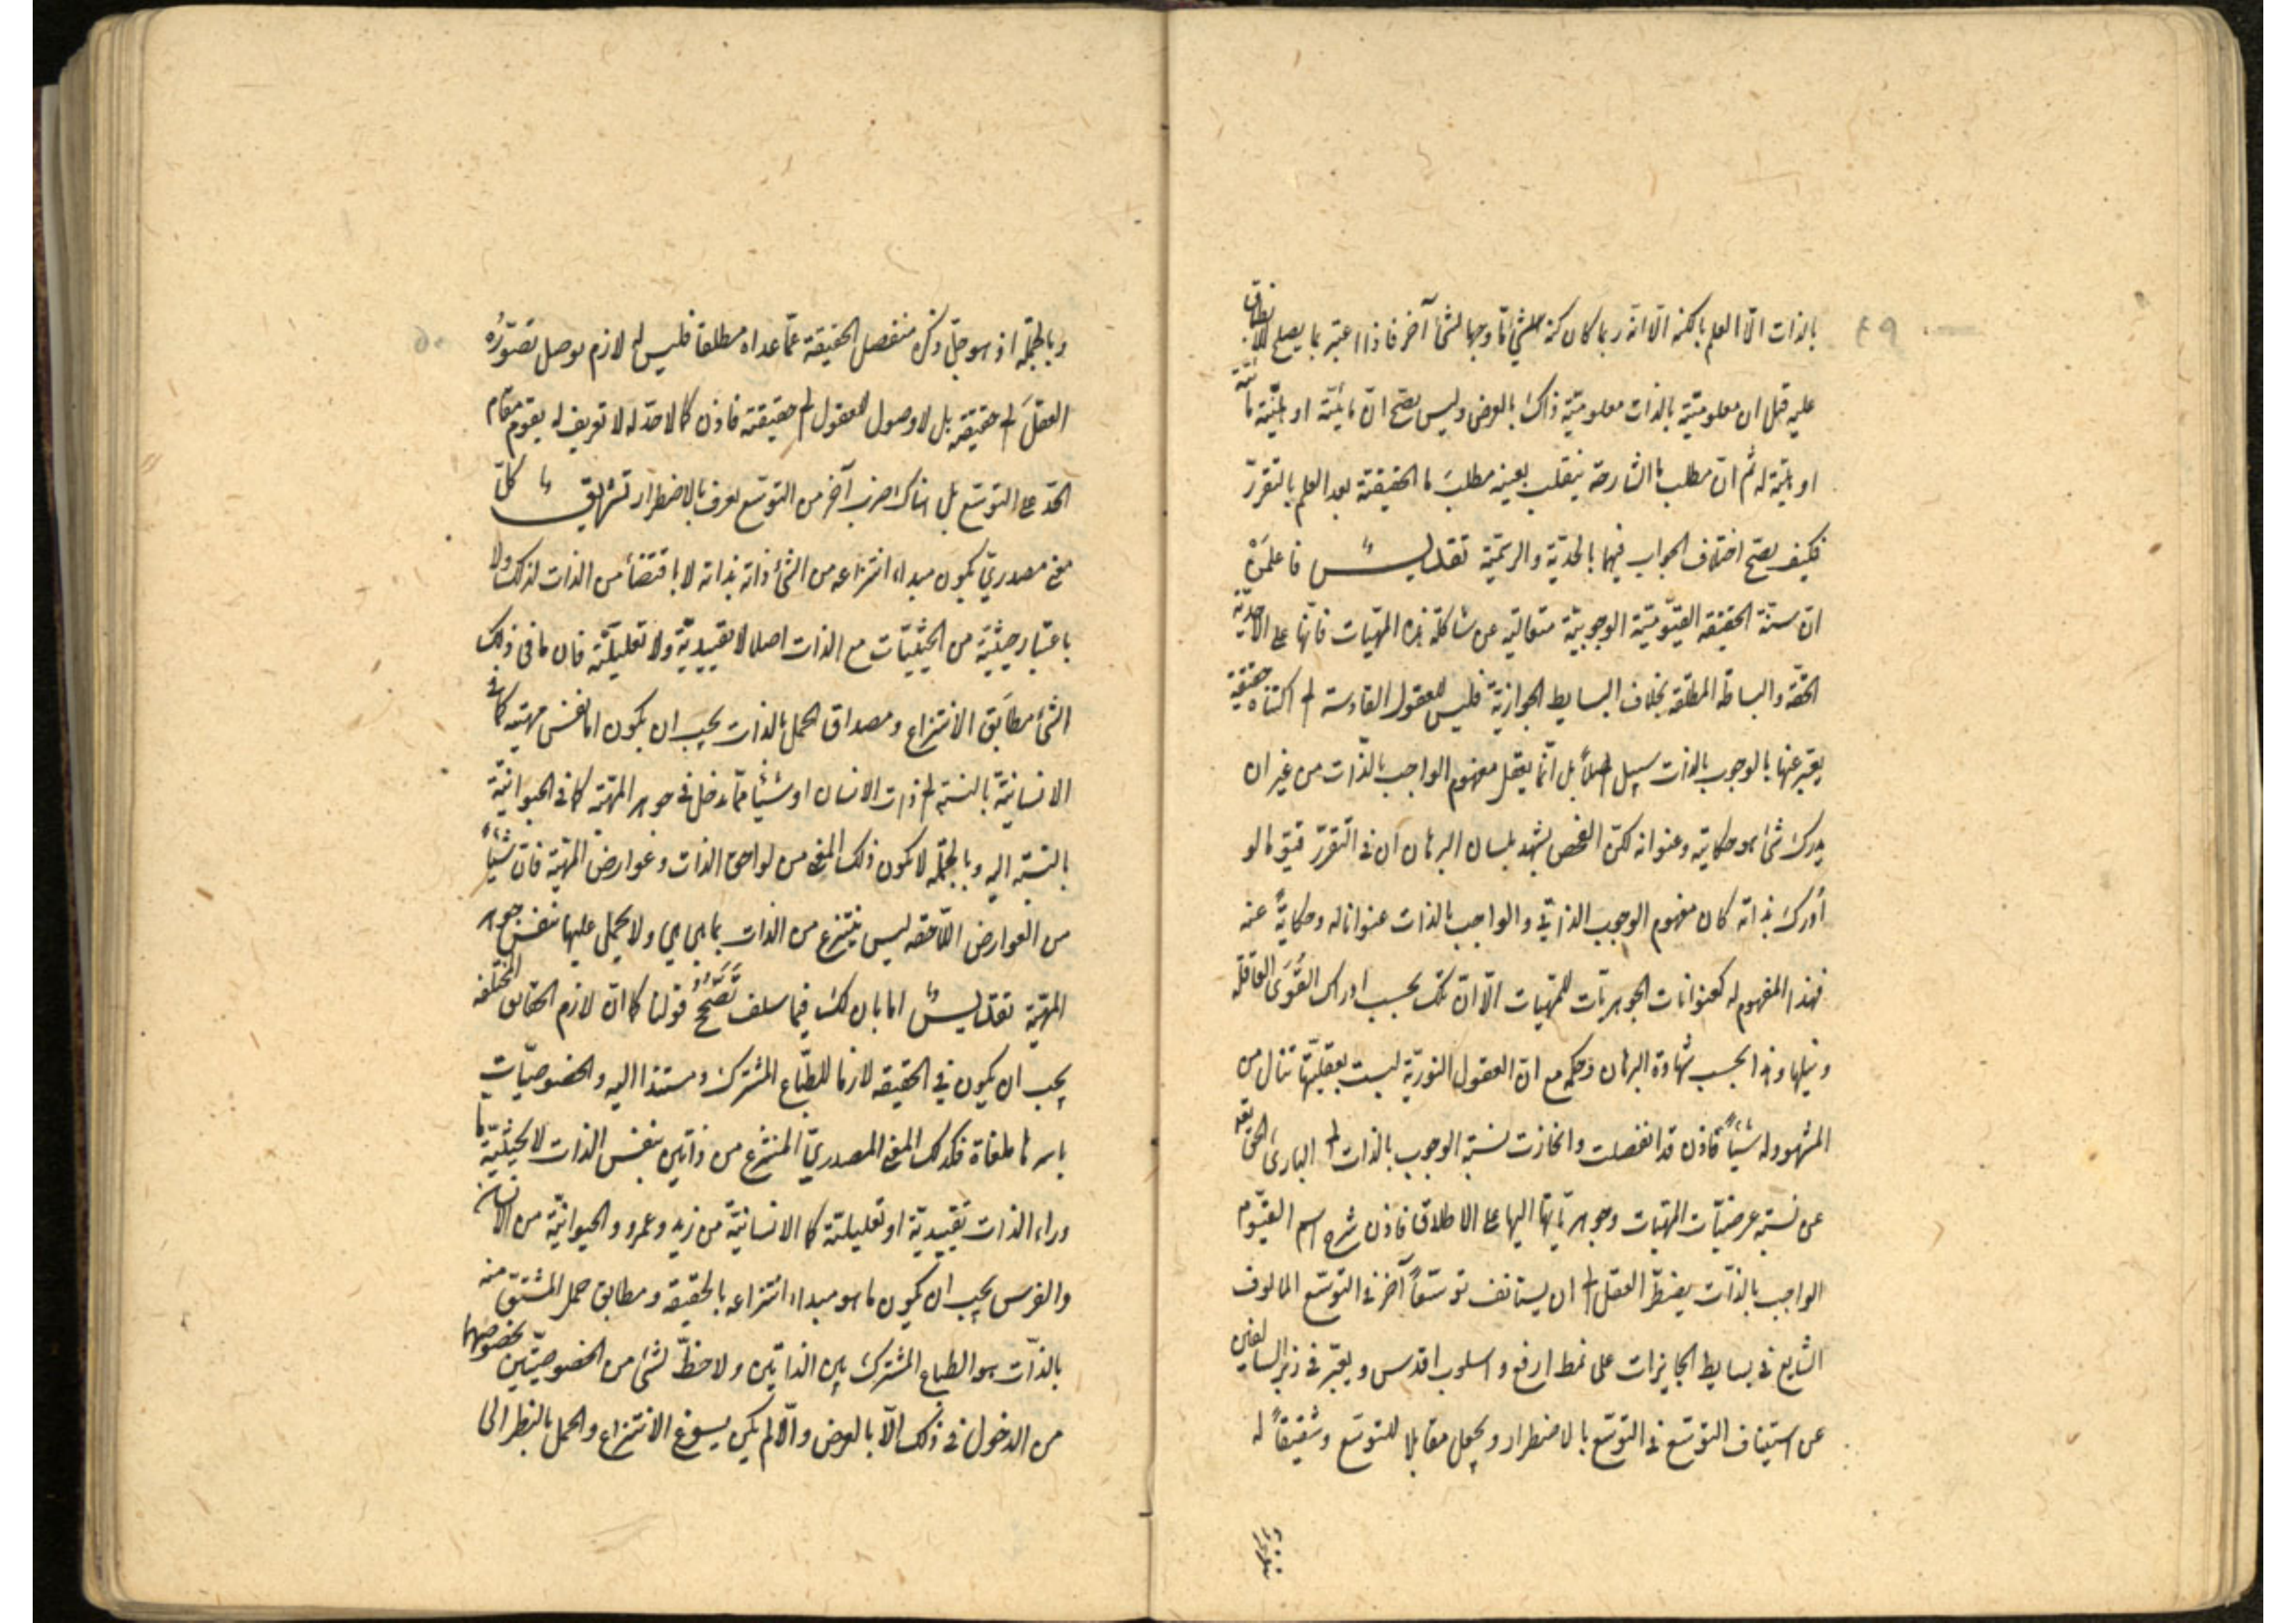 ٤٩
بالذات الّا العلم بالكنه الّا انّه ربما كان كنه الشئ امّا وجها لشئ آخر فاذا اعتبر بما يصلح لانطباق
عليه قيل ان معلوميّته بالذات معلوميّة ذاك بالعرض وليس يصحّ انّ مائيّة او هليّة مائيّة
او هليّة له ثم انّ مطلب ما الشارحة ينقلب بعينه مطلب ما الحقيقة بعد العلم بالتقرّر
فكيف يصحّ اختلاف الجواب فيهما بالحدّية والرسميّة تقديس فاعلمن
انّ سنّة الحقيقة القيّوميّة الوجوبيّة متعالية عن مشاكلة هذه المهيّات فانّها على الاحديّة
الحقّة والبساطة المطلقة بخلاف البسايط الجوازيّة فليس للعقول القادسة الى اكتناه حقيقة
يعبّر عنها بالوجوب بالذات سبيل اصلاً بل انّما يعقل مفهوم الواجب بالذّات من غير ان
يدرك شئ هو حكايته وعنوانه لكنّ الفحص يشهد بلسان البرهان ان في التقرّر قيّوما لو
أدرك بذاته كان مفهوم الوجوب الذاتيّ والواجب بالذات عنوانا له وحكايةً عنه
فهذا المفهوم له كعنوانات الجوهريّات للمهيات الّا انّ تلك بحسب ادراك القُوَى العاقلة
ونيلها وهذا بحسب شهادة البرهان وحكمه مع انّ العقول النوريّة ليست بعقليّتها تنال من
المشهود له شيئاً فاذن قد انفصلت وانحازت نسبة الوجوب بالذات الى البارئ الحق تعه
عن نسبة عرضيّات المهيّات وجوهريّاتها اليها على الاطلاق فاذن شرح اسم القيّوم
الواجب بالذّات يضطرّ العقل الى ان يستانف توسّعاً آخر في التوسّع المالوف
الشايع في بسايط الجايزات على نمط ارفع واسلوب اقدس ويعبّر في زبر السالفين
عن استيناف التوسّع في التوسّع بالاضطرار ويجعل مقابلا للتوسّع وشقيقاً له
وبالجملة اذ هو جلّ ذكره منفصل الحقيقة عمّا عداه مطلقا فليس له لازم يوصل تصوّرُه
العقلَ الى حقيقته بل لا وصول للعقول الى حقيقته فاذن كما لا حدّ له لا تعريف له يقوم مقام
الحدّ على التوسّع بل هناك ضرب آخر من التوسّع يعرف بالاضطرار تشريق كلّ
معنى مصدريّ يكون مبداء انتزاعه من الشئ ذاته بذاته لا باقتضاء من الذات لذلك ولا
باعتبار حيثيّة من الحيثيّات مع الذات اصلا لا تقييديّة ولا تعليليّة فان ما في ذلك
الشئ مطابَق الانتزاع ومصداق الحمل بالذات يجب ان يكون اما نفس مهيّته كما في
الانسانيّة بالنسبة الى ذات الانسان او شيئا ممّا يدخل في جوهر المهيّة كما في الحيوانيّة
بالنسبة اليه وبالجملة لا يكون ذلك المعنى من لواحق الذات وعوارض المهيّة فانّ شيئاً
من العوارض اللّاحقة ليس ينتزع من الذات بما هي هي ولا يحمل عليها بنفس جوهر
المهيّة تقديس اما بان لك فيما سلف تَصَحُّحُ قولنا كما انّ لازم الحقايق المختلفة
يجب ان يكون في الحقيقة لازما للطّباع المشترك ومستندا اليه والخصوصيّات
باسرها ملغاة فكذلك المعنى المصدريّ المنتزع من ذاتين بنفس الذات لا بحيثيّة ما
وراء الذات تقييديّة او تعليليّة كما الانسانيّة من زيد وعمرو والحيوانيّة من الانسان
والفرس يجب ان يكون ما هو مبداء انتزاعه بالحقيقة ومطابق حمل المشتقّ منه
بالذّات هو الطباع المشترك بين الذاتين ولا حظّ لشئ من الخصوصيّتين بخصوصهما
من الدخول في ذلك الّا بالعرض والّا لم يكن يسوغ الانتزاع والحمل بالنظر الى